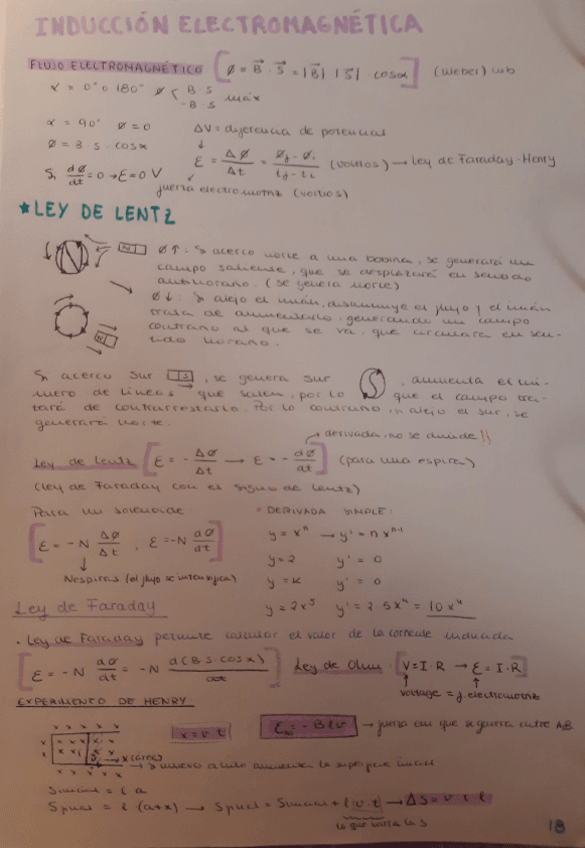 INDUCCIÓN ELECTROMAGNÉTICA
FLUJO ELECTROMAGNÉTICO [Ø = B⃗ · S⃗ = |B⃗| |S⃗| · cosα] (weber) wb
α = 0° o 180° Ø < B·S
-B·S máx
α = 90° Ø = 0 ΔV = diferencia de potencial
Ø = B·S·cosα ε = ΔØ/Δt = (Øf - Øi)/(tf - ti) (voltios) → ley de Faraday-Henry
Si dØ/dt = 0 → ε = 0 V
fuerza electromotriz (voltios)
* LEY DE LENTZ
Ø↑: Si acerco norte a una bobina, se generará un
campo saliente, que se desplazará en sentido
antihorario. (se genera norte)
Ø↓: Si alejo el imán, disminuye el flujo y el imán
trata de aumentarlo, generando un campo
contrario al que se va, que circulará en sen-
tido horario.
Si acerco sur, se genera sur, aumenta el nú-
mero de líneas que salen, por lo que el campo tra-
tará de contrarrestarlo. Por lo contrario, si alejo el sur, se
generará norte.
derivada, no se divide!!
Ley de Lentz [ε = - ΔØ/Δt → ε = - dØ/dt] (para una espira)
(ley de Faraday con el signo de Lentz)
Para un solenoide
[ε = -N ΔØ/Δt, ε = -N dØ/dt]
N espiras (el flujo se intensifica)
DERIVADA SIMPLE:
y = xⁿ → y' = n xⁿ⁻¹
y = 2 y' = 0
y = K y' = 0
y = 2x⁵ y' = 2·5x⁴ = 10x⁴
Ley de Faraday
· Ley de Faraday permite calcular el valor de la corriente inducida
[ε = -N dØ/dt = -N d(B·S·cosα)/dt] Ley de Ohm: [V = I·R → ε = I·R]
voltage = f. electromotriz
EXPERIMENTO DE HENRY
x = v·t
= -Blv → fuerza em que se genera entre A,B
x (área)
→ Si muevo
aumenta la superficie
Sinicial = l·a
Sfinal = l(a+x) → Sfinal = Sinicial + l(v·t) → ΔS = v·t·l
lo que varía la S
18